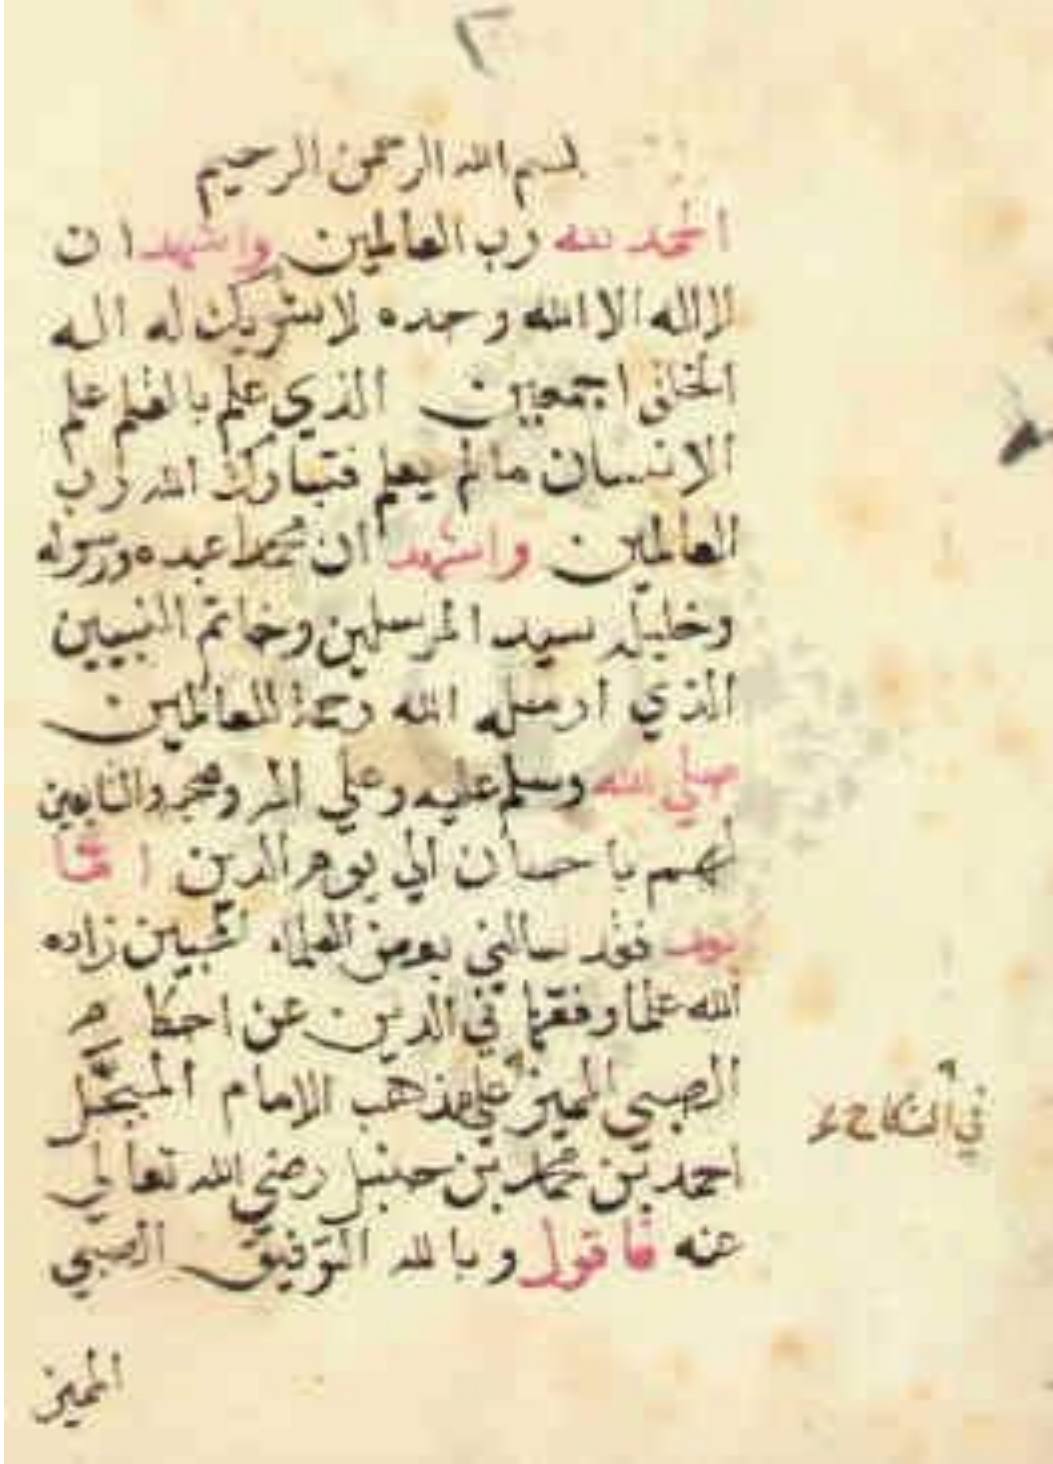 ٢
بسم الله الرحمن الرحيم
الحمد لله رب العالمين واشهد ان
لا اله الا الله وحده لا شريك له اله
الخلق اجمعين الذي علم بالقلم علم
الانسان مالم يعلم فتبارك الله رب
العالمين واشهد ان محمدا عبده ورسوله
وخليله سيد المرسلين وخاتم النبيين
الذي ارسله الله رحمة للعالمين
صلي الله وسلم عليه وعلي اله وصحبه والتابعين
لهم باحسان الي يوم الدين اما
بعد فقد سالني بعض العلماء زاده
الله علما وفقها في الدين عن احكام
الصبي المميز علي مذهب الامام المبجل
احمد بن محمد بن حنبل رضي الله تعالي
عنه فاقول وبالله التوفيق الصبي
المميز
في النكاح